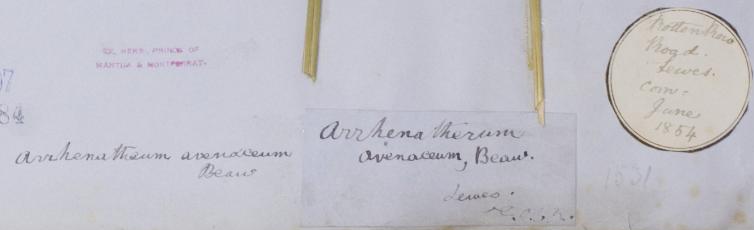 EX. HERB. PRINCE OF
MANTUA & MONTFERRAT.
Arrhenatheum avenaceum
Beauv
Arrhenatherum
avenaceum, Beauv.
Lewes.
Rotten Row
Road.
Lewes.
Com=
June
1854
1531